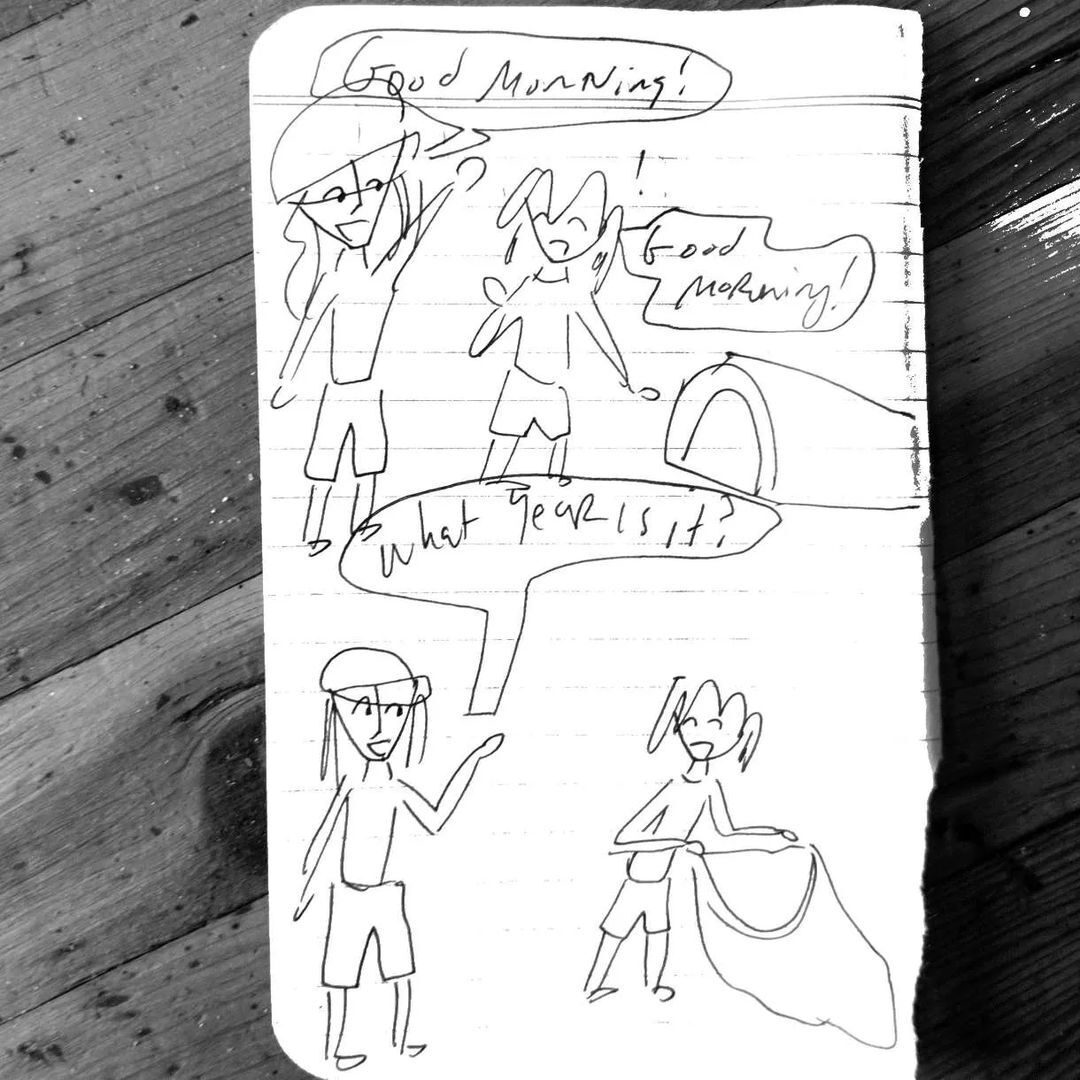 Good Morning!
!
Good
Morning!
What year is it?